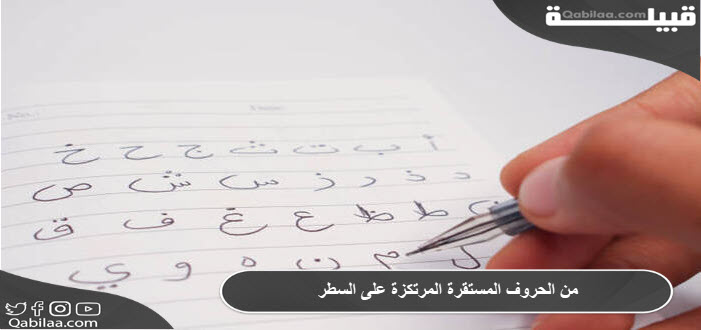 قبيلـــــة
Qabilaa.com
No.:
Date:
أ ب ت ث ج ح خ
د ذ ر ز س ش ص
ط ظ ع غ ف ق
ل م ن ه و ي
من الحروف المستقرة المرتكزة على السطر
Qabilaa.com